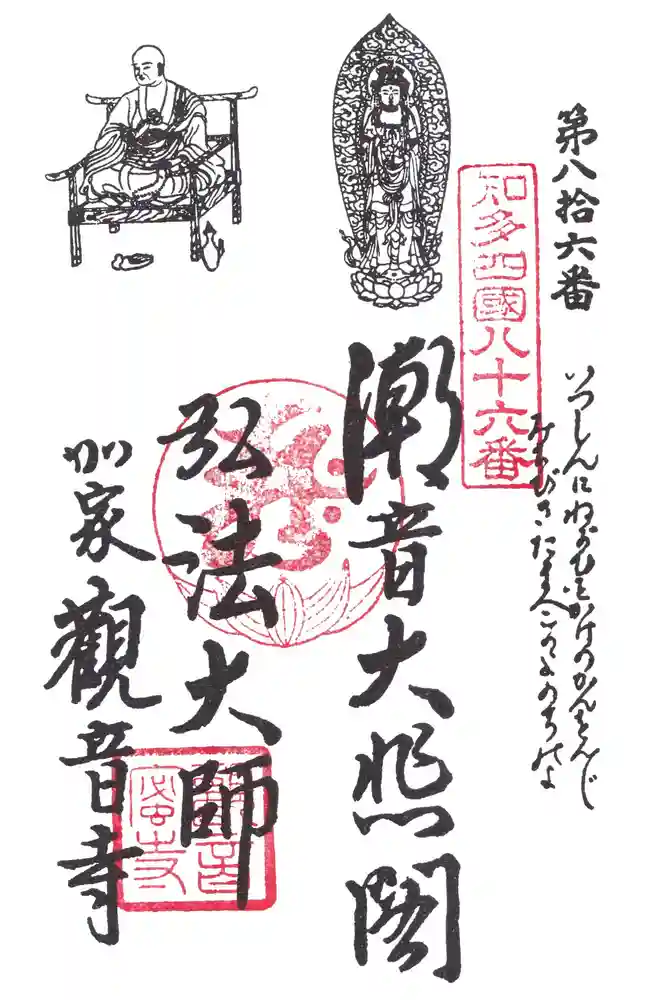 第八拾六番
知多四國八十六番
いつしんにねがもをかけのかんをんじ
みちびきたまへこのよのちのよ
潮音大悲閣
弘法大師
加家觀音寺